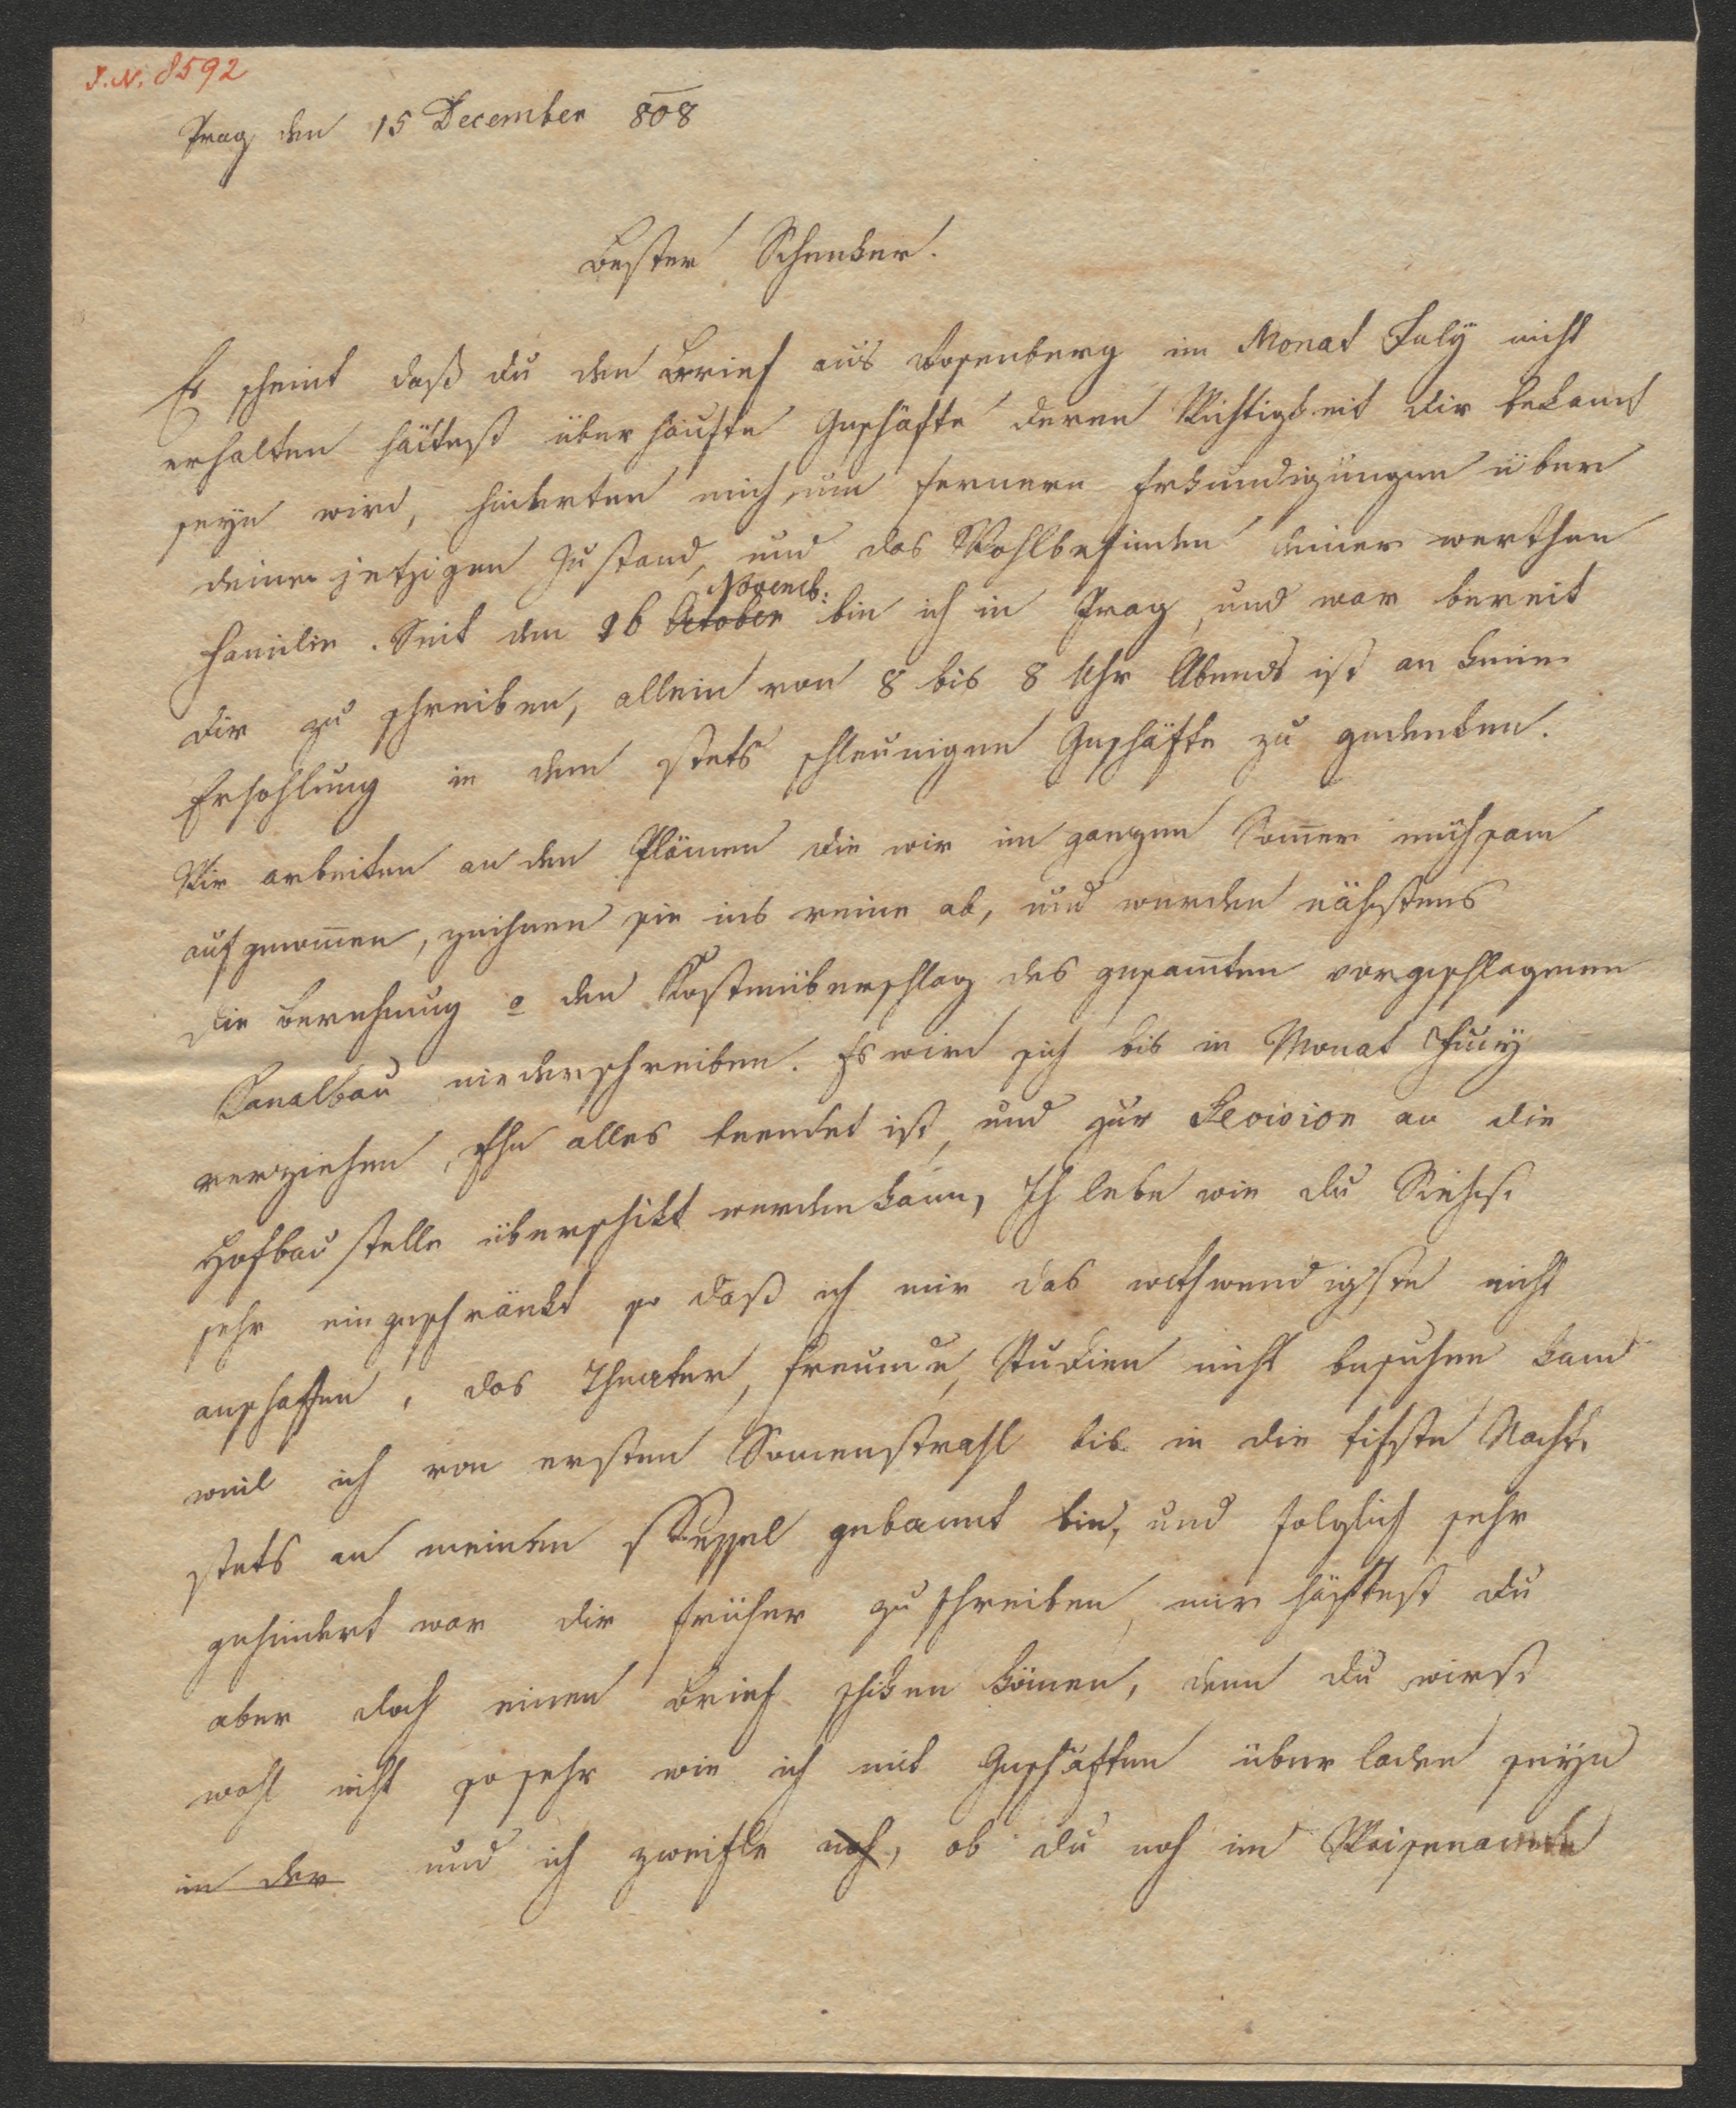 I.N. 8592
Prag den 15 December 808
Bester Schenker.
Es scheint daß du den Brief aus Rosenberg im Monat July nicht
erhalten hättest überhaufte Geschäfte deren Wichtigkeit dir bekannt
seyn wird, hinderten mich um fernere Erkundigungen über
deinen jetzigen Zustand, und das Wohlbefinden deiner werthen
Familie. Seit dem 16 October Novemb: bin ich in Prag, und war bereit
dir zu schreiben, allein von 8 bis 8 Uhr Abends ist an keine
Erhohlung in dem stets schleunigen Geschäfte zu gedenken.
Wir arbeiten an den Plänen die wir im ganzen Som̅er mühsam
aufgenom̅en, zeichnen sie ins reine ab, und werden nähstens
die Berechnung o den Kostenüberschlag des gesam̅ten vorgeschlagenen
Canalbau niederschreiben. Es wird sich bis in Monat Juny
verziehen, Ehe alles beendet ist, und zur Revision an die
Hofbaustelle überschikt werden kann, Ich lebe wie du Siehst
sehr eingeschränkt so daß ich mir das nothwendigste nicht
anschaffen, das Theater, Freunde, Studien nicht besuchen kann
weil ich von ersten Sonnenstrahl bis in die tiefste Nacht
stets an meinen Sessel gebannt bin, und folglich sehr
gehindert war dir früher zu schreiben, mir hättest du
aber doch einen Brief schiken können, denn du wirst
wohl nicht so sehr wie ich mit Geschäften überladen seyn
in der und ich zweifle noch, ob du noch im Waisenamte